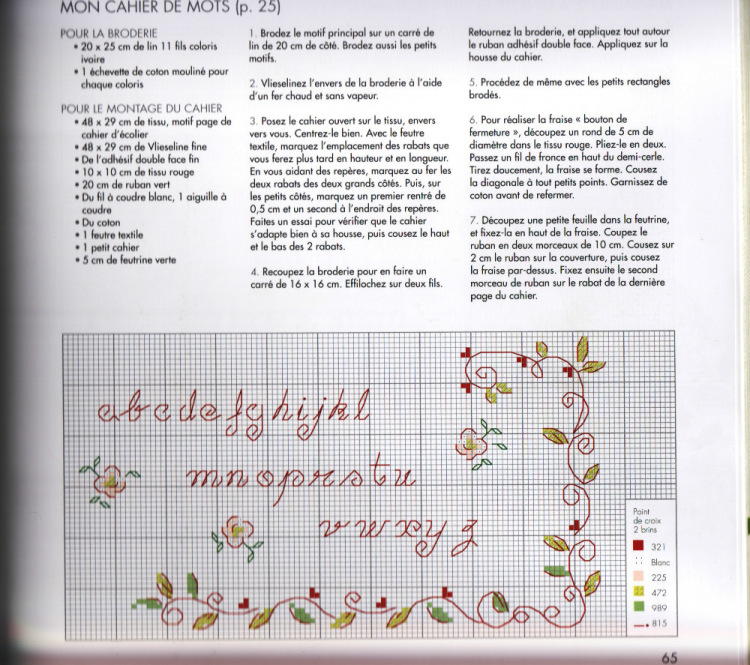 MON CAHIER DE MOTS (p. 25)
POUR LA BRODERIE
• 20 x 25 cm de lin 11 fils coloris
ivoire
• 1 échevette de coton mouliné pour
chaque coloris
POUR LE MONTAGE DU CAHIER
• 48 x 29 cm de tissu, motif page de
cahier d'écolier
• 48 x 29 cm de Vlieseline fine
• De l'adhésif double face fin
• 10 x 10 cm de tissu rouge
• 20 cm de ruban vert
• Du fil à coudre blanc, 1 aiguille à
coudre
• Du coton
• 1 feutre textile
• 1 petit cahier
• 5 cm de feutrine verte
1. Brodez le motif principal sur un carré de
lin de 20 cm de côté. Brodez aussi les petits
motifs.
2. Vlieselinez l'envers de la broderie à l'aide
d'un fer chaud et sans vapeur.
3. Posez le cahier ouvert sur le tissu, envers
vers vous. Centrez-le bien. Avec le feutre
textile, marquez l'emplacement des rabats que
vous ferez plus tard en hauteur et en longueur.
En vous aidant des repères, marquez au fer les
deux rabats des deux grands côtés. Puis, sur
les petits côtés, marquez un premier rentré de
0,5 cm et un second à l'endroit des repères.
Faites un essai pour vérifier que le cahier
s'adapte bien à sa housse, puis cousez le haut
et le bas des 2 rabats.
4. Recoupez la broderie pour en faire un
carré de 16 x 16 cm. Effilochez sur deux fils.
Retournez la broderie, et appliquez tout autour
le ruban adhésif double face. Appliquez sur la
housse du cahier.
5. Procédez de même avec les petits rectangles
brodés.
6. Pour réaliser la fraise « bouton de
fermeture », découpez un rond de 5 cm de
diamètre dans le tissu rouge. Pliez-le en deux.
Passez un fil de fronce en haut du demi-cercle.
Tirez doucement, la fraise se forme. Cousez
la diagonale à tout petits points. Garnissez de
coton avant de refermer.
7. Découpez une petite feuille dans la feutrine,
et fixez-la en haut de la fraise. Coupez le
ruban en deux morceaux de 10 cm. Cousez sur
2 cm le ruban sur la couverture, puis cousez
la fraise par-dessus. Fixez ensuite le second
morceau de ruban sur le rabat de la dernière
page du cahier.
abcdefghijkl
mnoprstu
Point
de croix
2 brins
321
Blanc
225
472
989
815
65